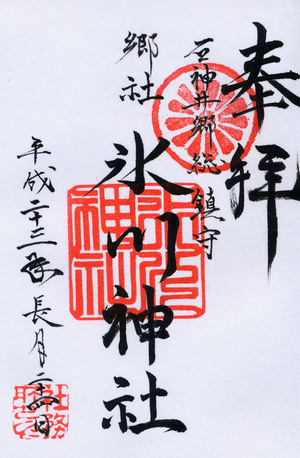 奉拝
石神井郷総鎮守
郷社
氷川神社
平成二十三年長月二十四日
氷川神社
社務所